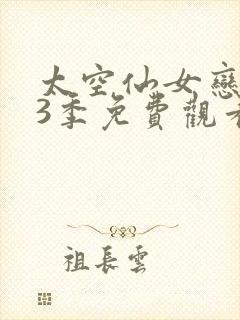 太空仙女戀
3季免費觀看
祖長雲